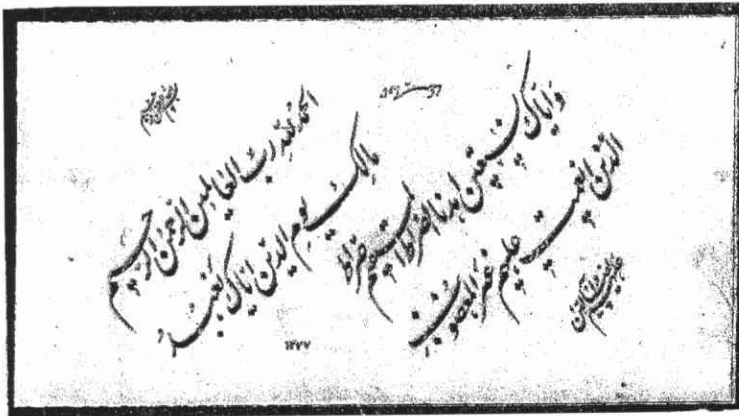 بسم الله الرحمن الرحيم
الحمد لله رب العالمين الرحمن الرحيم
مالك يوم الدين اياك نعبد
و اياك نستعين اهدنا الصراط المستقيم صراط
الذين انعمت عليهم غير المغضوب
عليهم ولا الضالين
۱۲۷۷